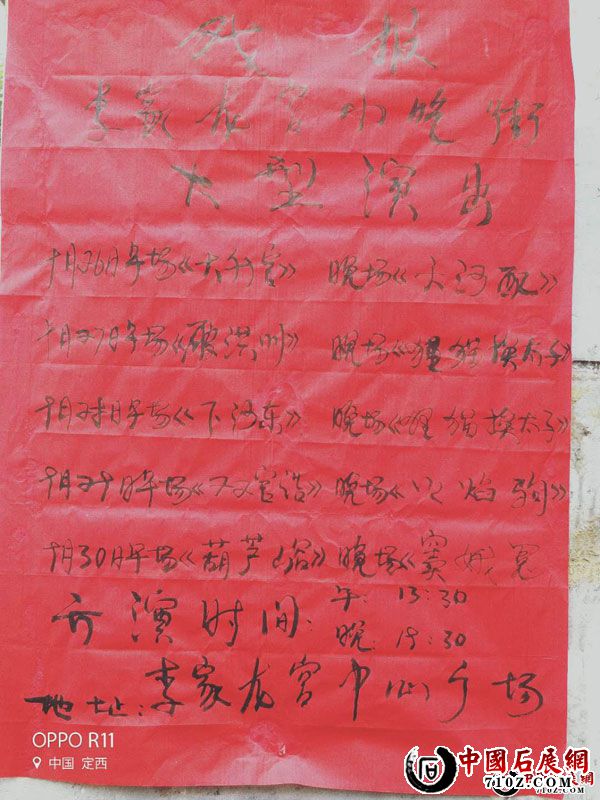 戏报
李家龙宫小吃街
大型演出
十月26日午场《大升官》 晚场《天河配》
十月27日午场《破洪州》 晚场《狸猫换太子》
十月28日午场《下河东》 晚场《狸猫换太子》
十月29日午场《双官诰》 晚场《火焰驹》
十月30日午场《葫芦峪》 晚场《窦娥冤
开演时间: 午: 13:30
晚: 18:30
地址: 李家龙宫中心广场
OPPO R11
中国 定西
中國石展網
7102.COM